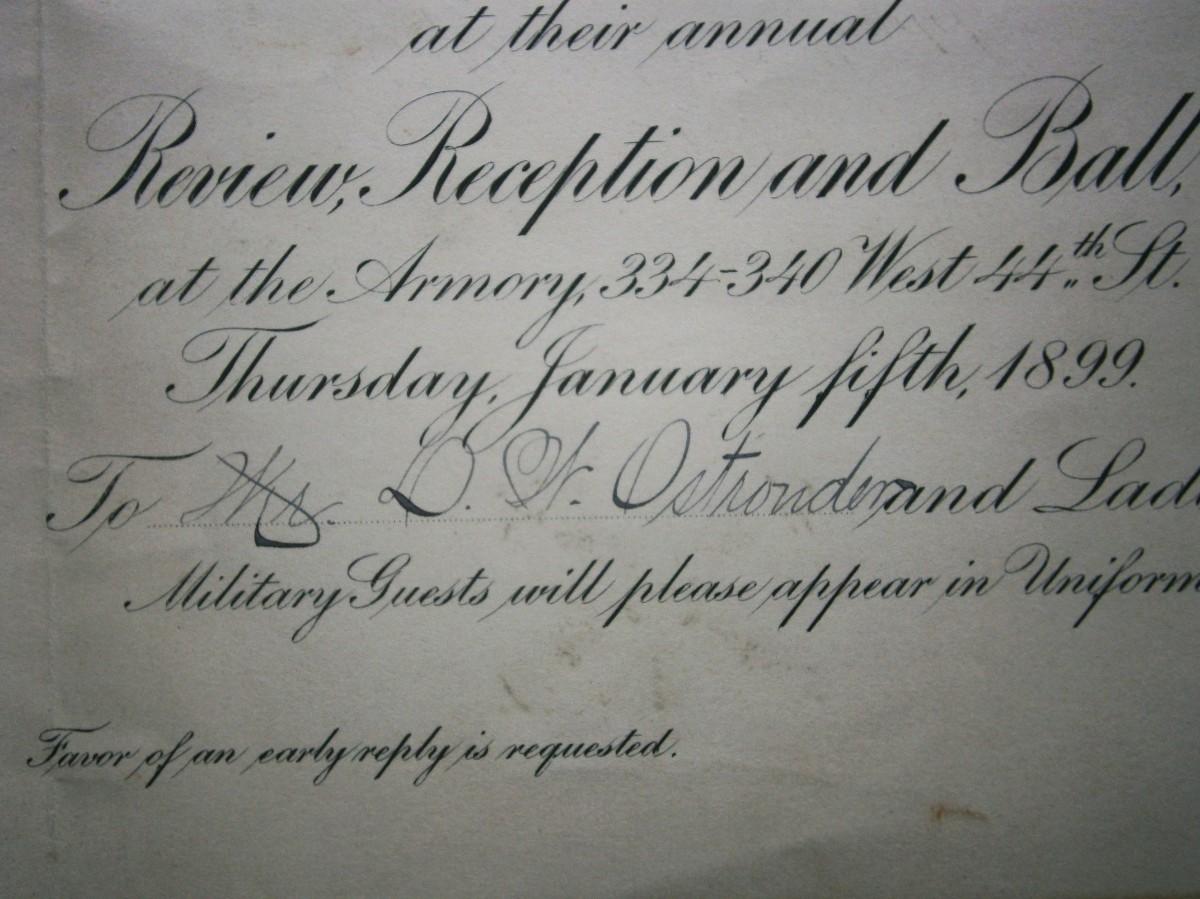 at their annual
Review, Reception and Ball,
at the Armory, 334-340 West 44th St.
Thursday, January fifth, 1899.
To Mr. D. W. Ostrander and Lad
Military Guests will please appear in Uniform
Favor of an early reply is requested.